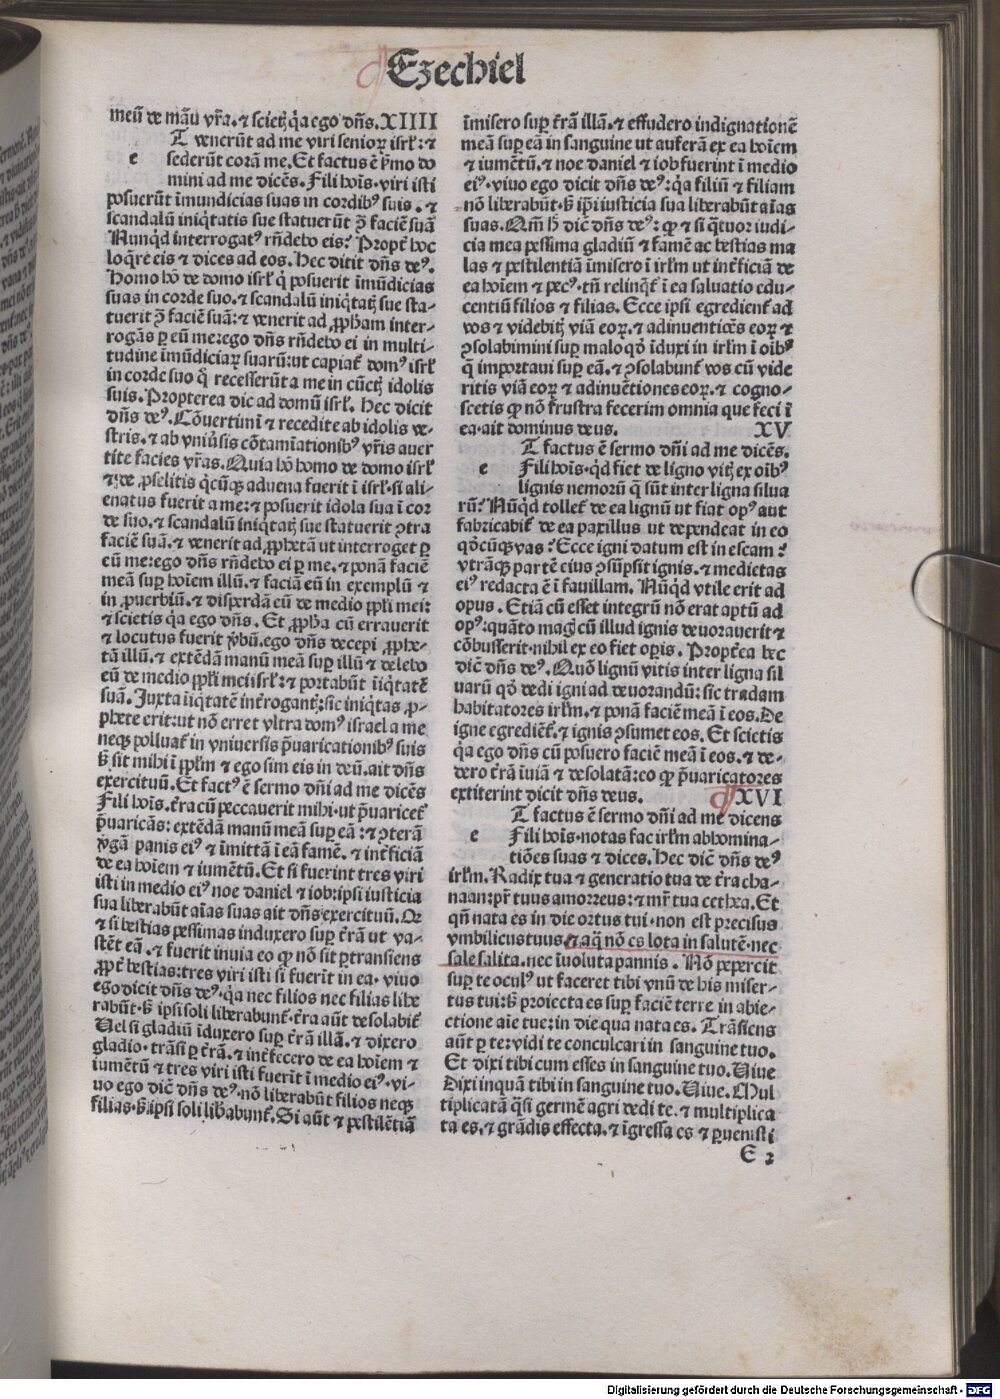 Ezechiel
meū de māu vr̄a. ⁊ scietꝭ q̄a ego dn̄s. XIIII
T venerūt ad me viri senioꝝ isrl̄: ⁊
e sederūt corā me. Et factus ē s̄mo do
mini ad me dicēs. Fili hoīs. viri isti
posuerūt īmundicias suas in cordibꝰ suis. ⁊
scandalū iniq̄tatis sue statuerūt ꝯ̄ faciē suā
Nunqͥd interrogatꝰ rn̄debo eis? Propt̄ hoc
loq̄re eis ⁊ dices ad eos. Hec dicit dn̄s deꝰ.
Homo hō de domo isrl̄ q̇ posuerit īmūdicias
suas in corde suo. ⁊ scandalū iniq̄tatꝭ sue sta-
tuerit ꝯ̄ faciē suā: ⁊ venerit ad ꝓpham inter-
rogās ꝑ eū me: ego dn̄s rn̄debo ei in multi-
tudine īmūdiciaꝝ suarū: ut capiat̄ domꝰ isrl̄
in corde suo q̇ recesserūt a me in cūctꝭ idolis
suis. Propterea dic ad domū isrl̄. Hec dicit
dn̄s deꝰ. Cōuertimī ⁊ recedite ab idolis ve-
stris. ⁊ ab vniūsis cōtamīationibꝰ vr̄is auer
tite facies vr̄as. Quia hō homo de domo isrl̄
⁊ de ꝓselitis q̇cūqꝫ aduena fuerit ī isrl̄. si ali-
enatus fuerit a me: ⁊ posuerit idola sua ī cor
de suo. ⁊ scandalū iniq̄tatꝭ sue statuerit ꝯtra
faciē suā. ⁊ venerit ad ꝓphetā ut interroget ꝑ
eū me: ego dn̄s rn̄debo ei ꝑ me. ⁊ ponā faciē
meā suꝑ hoīem illū. ⁊ faciā eū in exemplū ⁊
in ꝓuerbiū. ⁊ disperdā eū de medio pp̄li mei:
⁊ scietis q̄a ego dn̄s. Et ꝓpha cū errauerit
⁊ locutus fuerit v̄bū. ego dn̄s decepi ꝓphe-
tā illū. ⁊ extēdā manū meā suꝑ illū ⁊ delebo
eū de medio pp̄li mei isrl̄: ⁊ portabūt īiq̄tatē
suā. Juxta īiq̄tatē int̄rogantꝭ: sic iniq̄tas ꝓ-
phete erit: ut nō erret vltra domꝰ israel a me
neqꝫ polluat̄ in vniuersis p̄uaricationibꝰ suis
ꝫ sit mihi ī pp̄lm ⁊ ego sim eis in deū. ait dn̄s
exercituū. Et factꝰ ē sermo dn̄i ad me dicēs
Fili hoīs. t̄ra cū peccauerit mihi. ut p̄uaricet̄
p̄uaricās: extēdā manū meā suꝑ eā: ⁊ ꝯterā
v̄gā panis eiꝰ ⁊ īmittā ī eā famē. ⁊ int̄ficiā
de ea hoīem ⁊ iumētū. Et si fuerint tres viri
isti in medio eiꝰ noe daniel ⁊ iob: ipsi iusticia
sua liberabūt aīas suas ait dn̄s exercituū. Qꝛ
⁊ si bestias pessimas induxero suꝑ t̄rā ut va-
stēt eā. ⁊ fuerit inuia eo ꝙ nō sit ꝑtransiens
ꝓpt̄ bestias: tres viri isti si fuerīt in ea. viuo
ego dicit dn̄s deꝰ. q̄a nec filios nec filias libe
rabūt. ꝫ ipsi soli liberabunt̄. t̄ra aūt desolabit̄
Uel si gladiū īduxero suꝑ t̄rā illā. ⁊ dixero
gladio. trāsi ꝑ t̄rā. ⁊ int̄fecero de ea hoīem ⁊
iumētū ⁊ tres viri isti fuerīt ī medio eiꝰ. vi-
uo ego dic̄ dn̄s deꝰ. nō liberabūt filios neqꝫ
filias. ꝫ ipsi soli lib̄abunt̄. Si aūt ⁊ pestilētiā
īmisero suꝑ t̄rā illā. ⁊ effudero indignationē
meā suꝑ eā in sanguine ut auferā ex ea hoīem
⁊ iumētū. ⁊ noe daniel ⁊ iob fuerint ī medio
eiꝰ. viuo ego dicit dn̄s deꝰ: q̄a filiū ⁊ filiam
nō liberabūt. ꝫ ip̄i iusticia sua liberabūt aīas
suas. Qm̄ h̄ dic̄ dn̄s deꝰ: ꝙ ⁊ si q̄tuor iudi-
cia mea pessima gladiū ⁊ famē ac bestias ma
las ⁊ pestilentiā īmisero ī irl̄m ut int̄ficiā de
ea hoīem ⁊ pecꝰ. tn̄ relinq̄t̄ ī ea saluatio edu-
centiū filios ⁊ filias. Ecce ipsi egredient̄ ad
vos ⁊ videbitꝭ viā eoꝝ. ⁊ adinuentiōes eoꝝ ⁊
ꝯsolabimini suꝑ malo qd̄ īduxi in irl̄m ī oībꝰ
q̄ importaui suꝑ eā. ⁊ ꝯsolabunt̄ vos cū vide
ritis viā eoꝝ ⁊ adinuētiones eoꝝ. ⁊ cogno-
scetis ꝙ nō frustra fecerim omnia que feci ī
ea. ait dominus deus. XV
T factus ē sermo dn̄i ad me dicēs.
e Fili hoīs. qͥd fiet de ligno vitꝭ ex oībꝰ
lignis nemorū q̄ sūt inter ligna silua
rū? Nūqͥd tollet̄ de ea lignū ut fiat opꝰ aut
fabricabit̄ de ea paxillus ut dependeat in eo
qd̄cūqꝫ vas? Ecce igni datum est in escam:
vtrāqꝫ partē eius ꝯsūpsit ignis. ⁊ medietas
eiꝰ redacta ē ī fauillam. Nūqͥd vtile erit ad
opus. Etiā cū esset integrū nō erat aptū ad
opꝰ: quāto magꝭ cū illud ignis deuorauerit ⁊
cōbusserit. nihil ex eo fiet oꝑis. Propt̄ea hec
dic̄ dn̄s deꝰ. Quō lignū vitis inter ligna sil
uarū qd̄ dedi igni ad deuorandū: sic tradam
habitatores irl̄m. ⁊ ponā faciē meā ī eos. De
igne egrediēt̄. ⁊ ignis ꝯsumet eos. Et scietis
q̄a ego dn̄s cū posuero faciē meā ī eos. ⁊ de-
dero t̄rā īuiā ⁊ desolatā: eo ꝙ p̄uaricatores
extiterint dicit dn̄s deus. XVI
T factus ē sermo dn̄i ad me dicens
e Fili hoīs. notas fac irl̄m abhomina-
tiōes suas ⁊ dices. Hec dic̄ dn̄s deꝰ
irl̄m. Radix tua ⁊ generatio tua de t̄ra cha-
naan: pr̄ tuus amorreus: ⁊ mr̄ tua cethea. Et
qn̄ nata es in die ortus tui. non est precisus
vmbilicus tuus ⁊ aq̄ nō es lota in salutē. nec
sale salita. nec īuoluta pannis. Nō pepercit
suꝑ te oculꝰ ut faceret tibi vnū de his miser-
tus tui: ꝫ proiecta es suꝑ faciē terre in abie-
ctione aīe tue: in die qua nata es. Trāsiens
aūt ꝑ te: vidi te conculcari in sanguine tuo.
Et dixi tibi cum esses in sanguine tuo. Viue
Dixi inquā tibi in sanguine tuo. Viue. Mul
tiplicatā q̄si germē agri dedi te. ⁊ multiplica
ta es. ⁊ grādis effecta. ⁊ īgressa es ⁊ ꝑuenisti
E 2
Digitalisierung gefördert durch die Deutsche Forschungsgemeinschaft - DFG